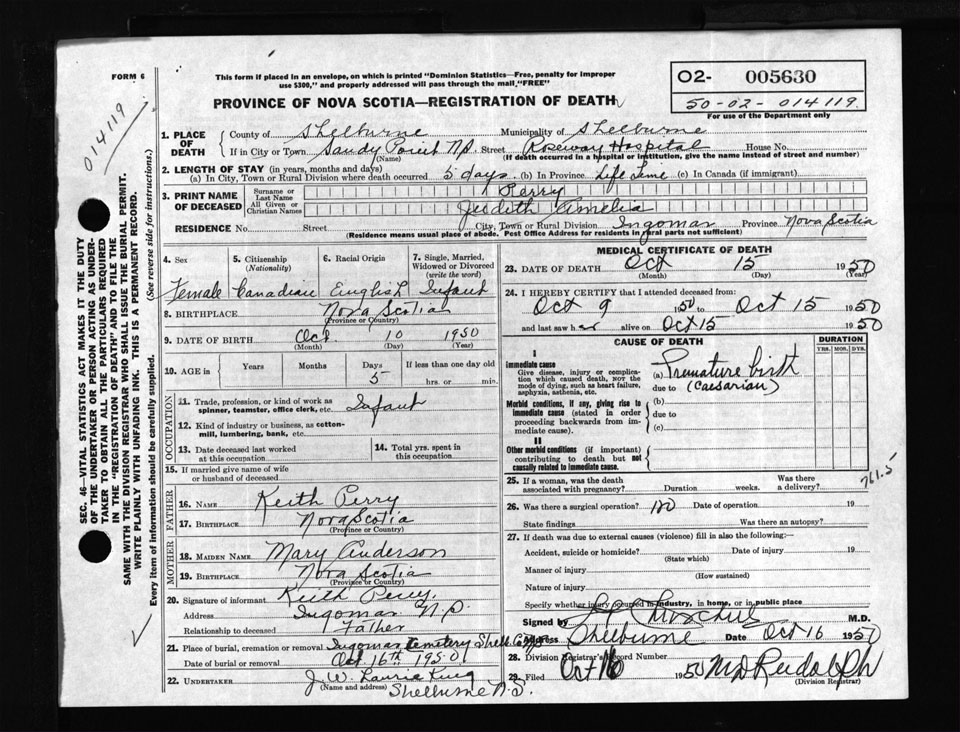 FORM 6
This form if placed in an envelope, on which is printed "Dominion Statistics—Free, penalty for improper
use $300," and properly addressed will pass through the mail "FREE"
PROVINCE OF NOVA SCOTIA—REGISTRATION OF DEATH
02- 005630
50-02-014119.
For use of the Department only
014119
SEC. 46—VITAL STATISTICS ACT MAKES IT THE DUTY
OF THE UNDERTAKER OR PERSON ACTING AS UNDER-
TAKER TO OBTAIN ALL THE PARTICULARS REQUIRED
IN THE "REGISTRATION OF DEATH" AND TO FILE THE
SAME WITH THE DIVISION REGISTRAR WHO SHALL ISSUE THE BURIAL PERMIT.
WRITE PLAINLY WITH UNFADING INK. THIS IS A PERMANENT RECORD.
Every item of information should be carefully supplied. (See reverse side for instructions.)
1. PLACE OF DEATH
County of Shelburne Municipality of Shelburne
If in City or Town Sandy Point N.S. Street Roseway Hospital House No.
(Name) (If death occurred in a hospital or institution, give the name instead of street and number)
2. LENGTH OF STAY (in years, months and days)
(a) In City, Town or Rural Division where death occurred 5 days (b) In Province Life Time (c) In Canada (if immigrant)
3. PRINT NAME OF DECEASED
Surname or Last Name Perry
All Given or Christian Names Judith Amelia
RESIDENCE No. Street City, Town or Rural Division Ingomar Province Nova Scotia
(Residence means usual place of abode. Post Office Address for residents in rural parts not sufficient)
4. Sex Female
5. Citizenship (Nationality) Canadian
6. Racial Origin English
7. Single, Married, Widowed or Divorced (write the word) Infant
8. BIRTHPLACE Nova Scotia
(Province or Country)
9. DATE OF BIRTH Oct. 10 1950
(Month) (Day) (Year)
10. AGE in Years Months Days 5 If less than one day old hrs. or min.
OCCUPATION
11. Trade, profession or kind of work as spinner, teamster, office clerk, etc. Infant
12. Kind of industry or business, as cotton-mill, lumbering, bank, etc.
13. Date deceased last worked at this occupation
14. Total yrs. spent in this occupation
15. If married give name of wife or husband of deceased
FATHER
16. NAME Keith Perry
17. BIRTHPLACE Nova Scotia
(Province or Country)
MOTHER
18. MAIDEN NAME Mary Anderson
19. BIRTHPLACE Nova Scotia
(Province or Country)
20. Signature of informant Keith Perry
Address Ingomar N.S.
Relationship to deceased Father
21. Place of burial, cremation or removal Ingomar Cemetery Shelb.
Date of burial or removal Oct 16th 1950
22. UNDERTAKER J.W. Laurie King
(Name and address) Shelburne N.S.
MEDICAL CERTIFICATE OF DEATH
23. DATE OF DEATH Oct 15 1950
(Month) (Day) (Year)
24. I HEREBY CERTIFY that I attended deceased from:
Oct 9 1950 to Oct 15 1950
and last saw her alive on Oct 15 1950
CAUSE OF DEATH
DURATION
YRS. MOS. DYS.
I
Immediate cause
Give disease, injury or complication which caused death, NOT the mode of dying, such as heart failure, asphyxia, asthenia, etc.
(a) Premature birth
due to (Caesarian)
Morbid conditions, if any, giving rise to immediate cause (stated in order proceeding backwards from immediate cause).
(b)
due to
(c)
II
Other morbid conditions (if important) contributing to death but not causally related to immediate cause.
761.5
25. If a woman, was the death associated with pregnancy? Duration weeks. Was there a delivery?
26. Was there a surgical operation? no Date of operation 19
State findings Was there an autopsy?
27. If death was due to external causes (violence) fill in also the following:—
Accident, suicide or homicide? Date of injury 19
(State which)
Manner of injury
(How sustained)
Nature of injury
Specify whether injury occurred in industry, in home, or in public place
Signed by M.D.
Address Shelburne Date Oct 16 1950
28. Division Registrar's Record Number
29. Filed Oct 16 1950 M D Rudolph
(Division Registrar)